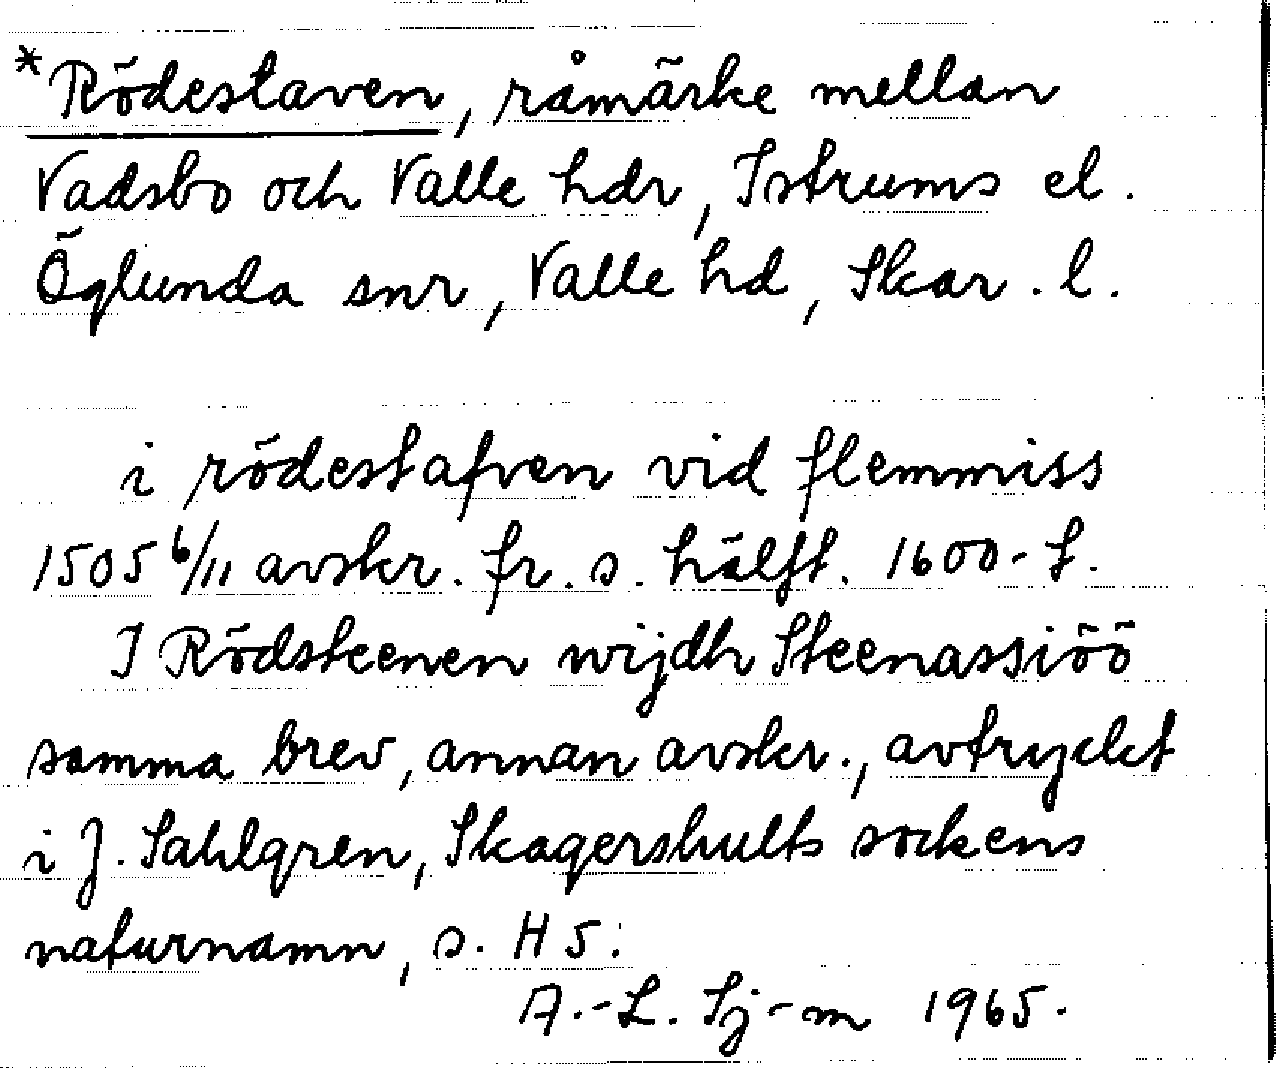 *Rödestaven, råmärke mellan
Vadsbo och Valle hdr, Istrums el.
Öglunda snr, Valle hd, Skar. l.
i rödestafven vid flemmiss
1505 6/11 avskr. fr. s. hälft. 1600-t.
I Rödsteenen wijdh Steenassiöö
samma brev, annan avskr., avtryckt
i J. Sahlgren, Skagershults sockens
naturnamn, s. H 5.
A.-L. Sj-m 1965.